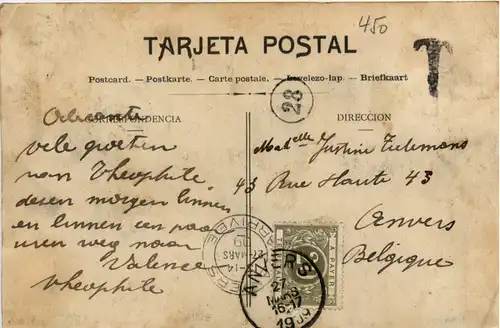 450
TARJETA POSTAL
T
Postcard. — Postkarte. — Carte postale. — Levelezo-lap. — Briefkaart
28
CORRESPONDENCIA
DIRECCION
Alicante
vele groeten
van Theophile
dezen morgen binnen
en binnen een paar
uren weg naar
Valence
Theophile
Mad elle Justine
43 Rue Haute 43
Anvers
Belgique
ARRIVÉE
27 MARS
09
A PAYER
ANVERS
27
MARS
16-17
1909